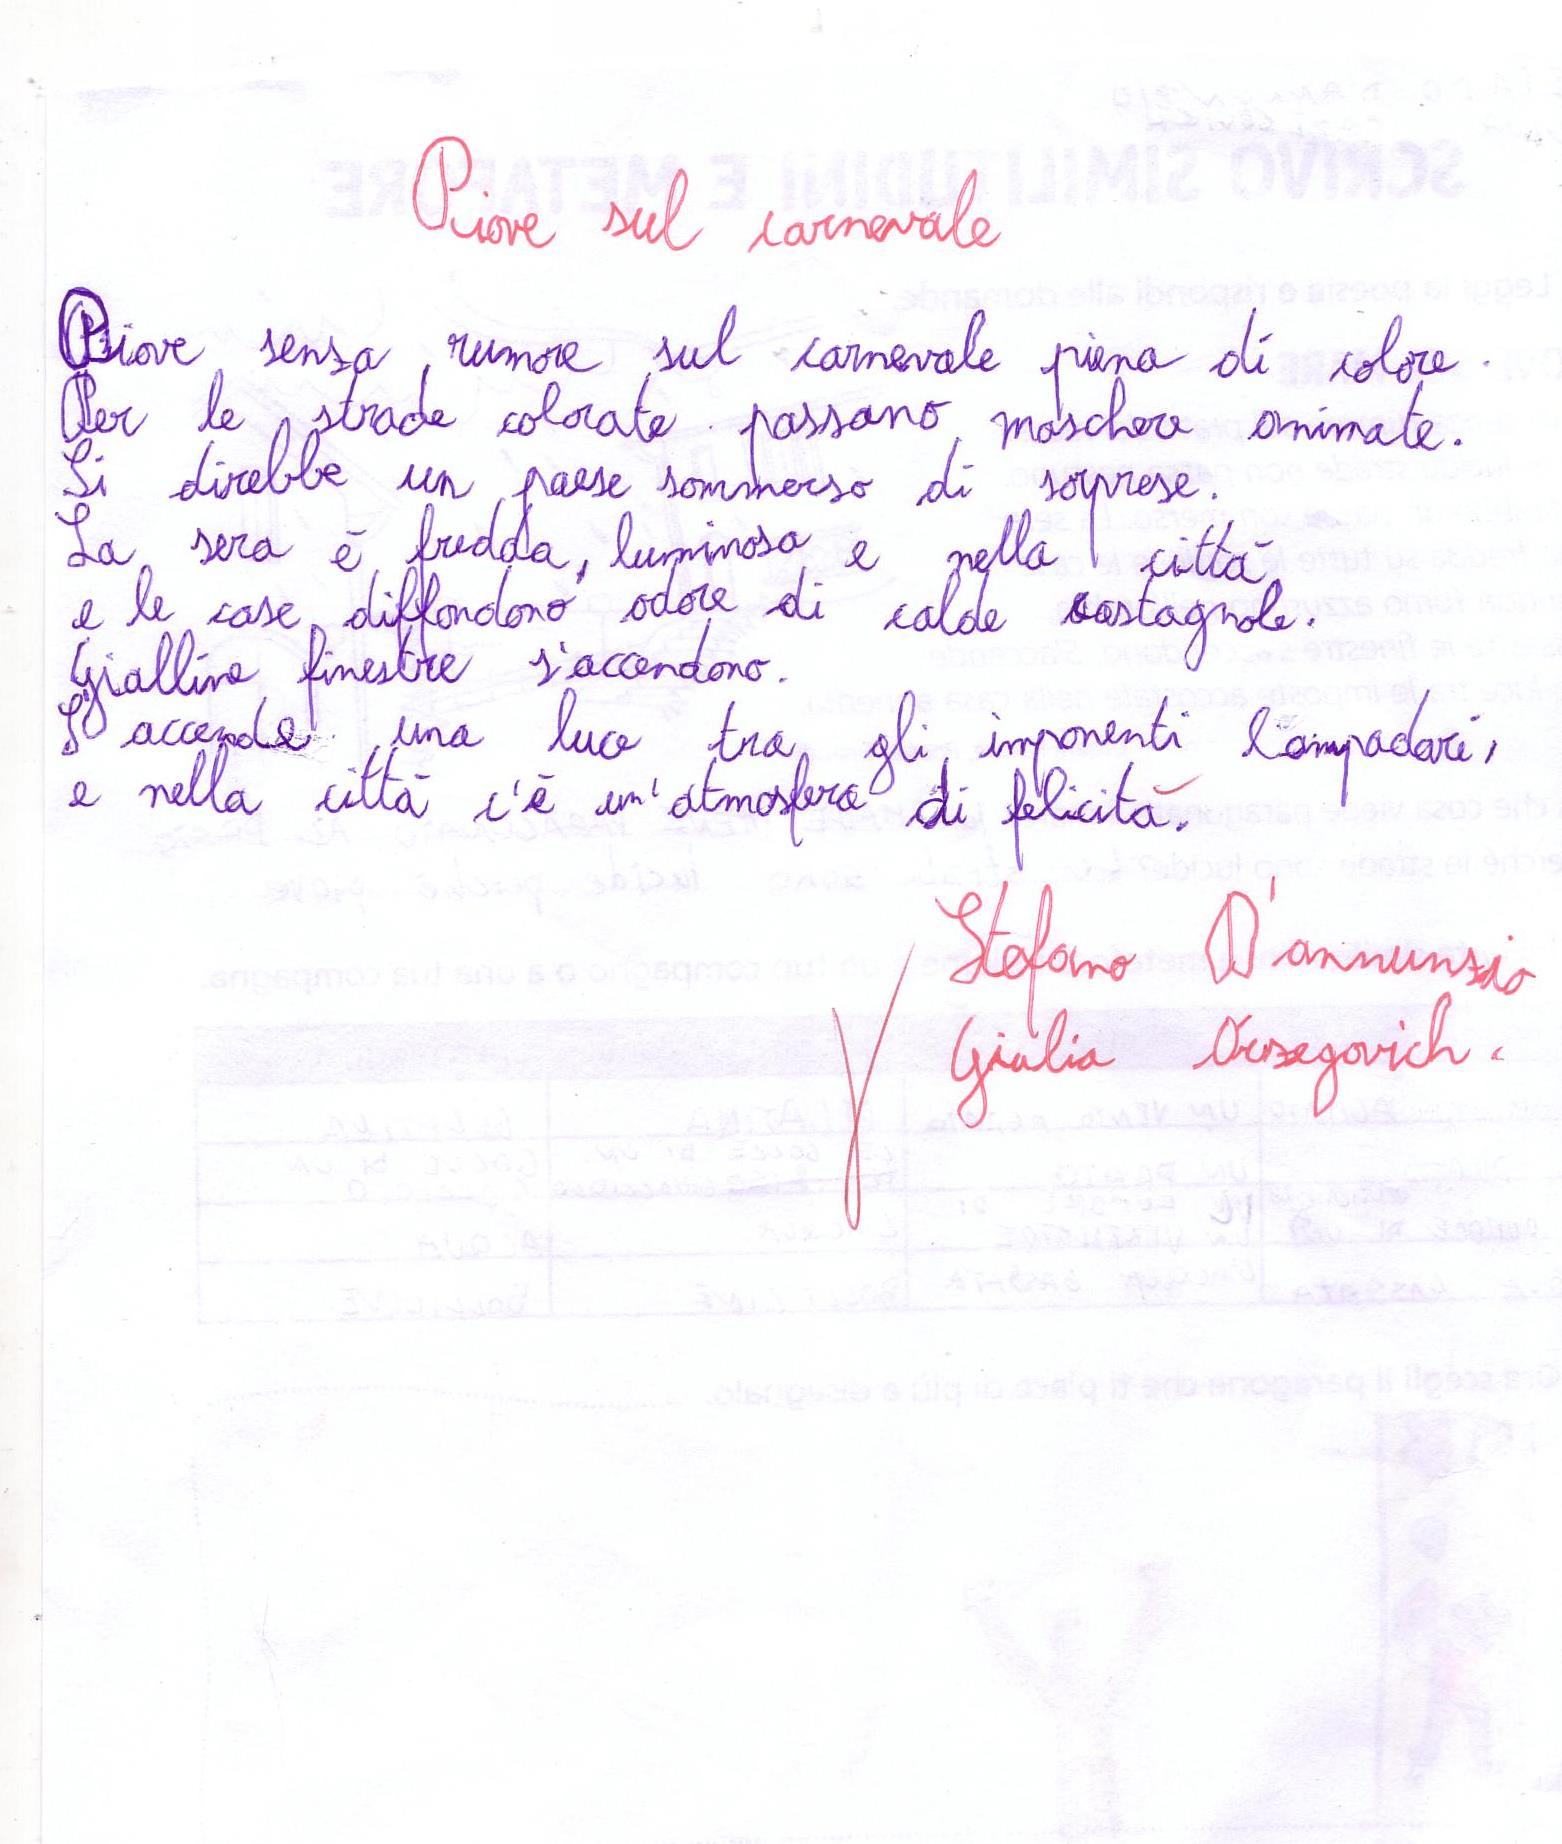 Piove sul carnevale
Piove senza rumore sul carnevale piena di colore.
Per le strade colorate passano maschere animate.
Si direbbe un paese sommerso di soprese.
La sera è fredda, luminosa e nella città
e le case diffondono odore di calde castagnole.
Gialline finestre s'accendono.
S'accende una luce tra gli imponenti lampadari,
e nella città c'è un'atmosfera di felicità.
Stefano D'annunzio
Giulia Orzegovich.